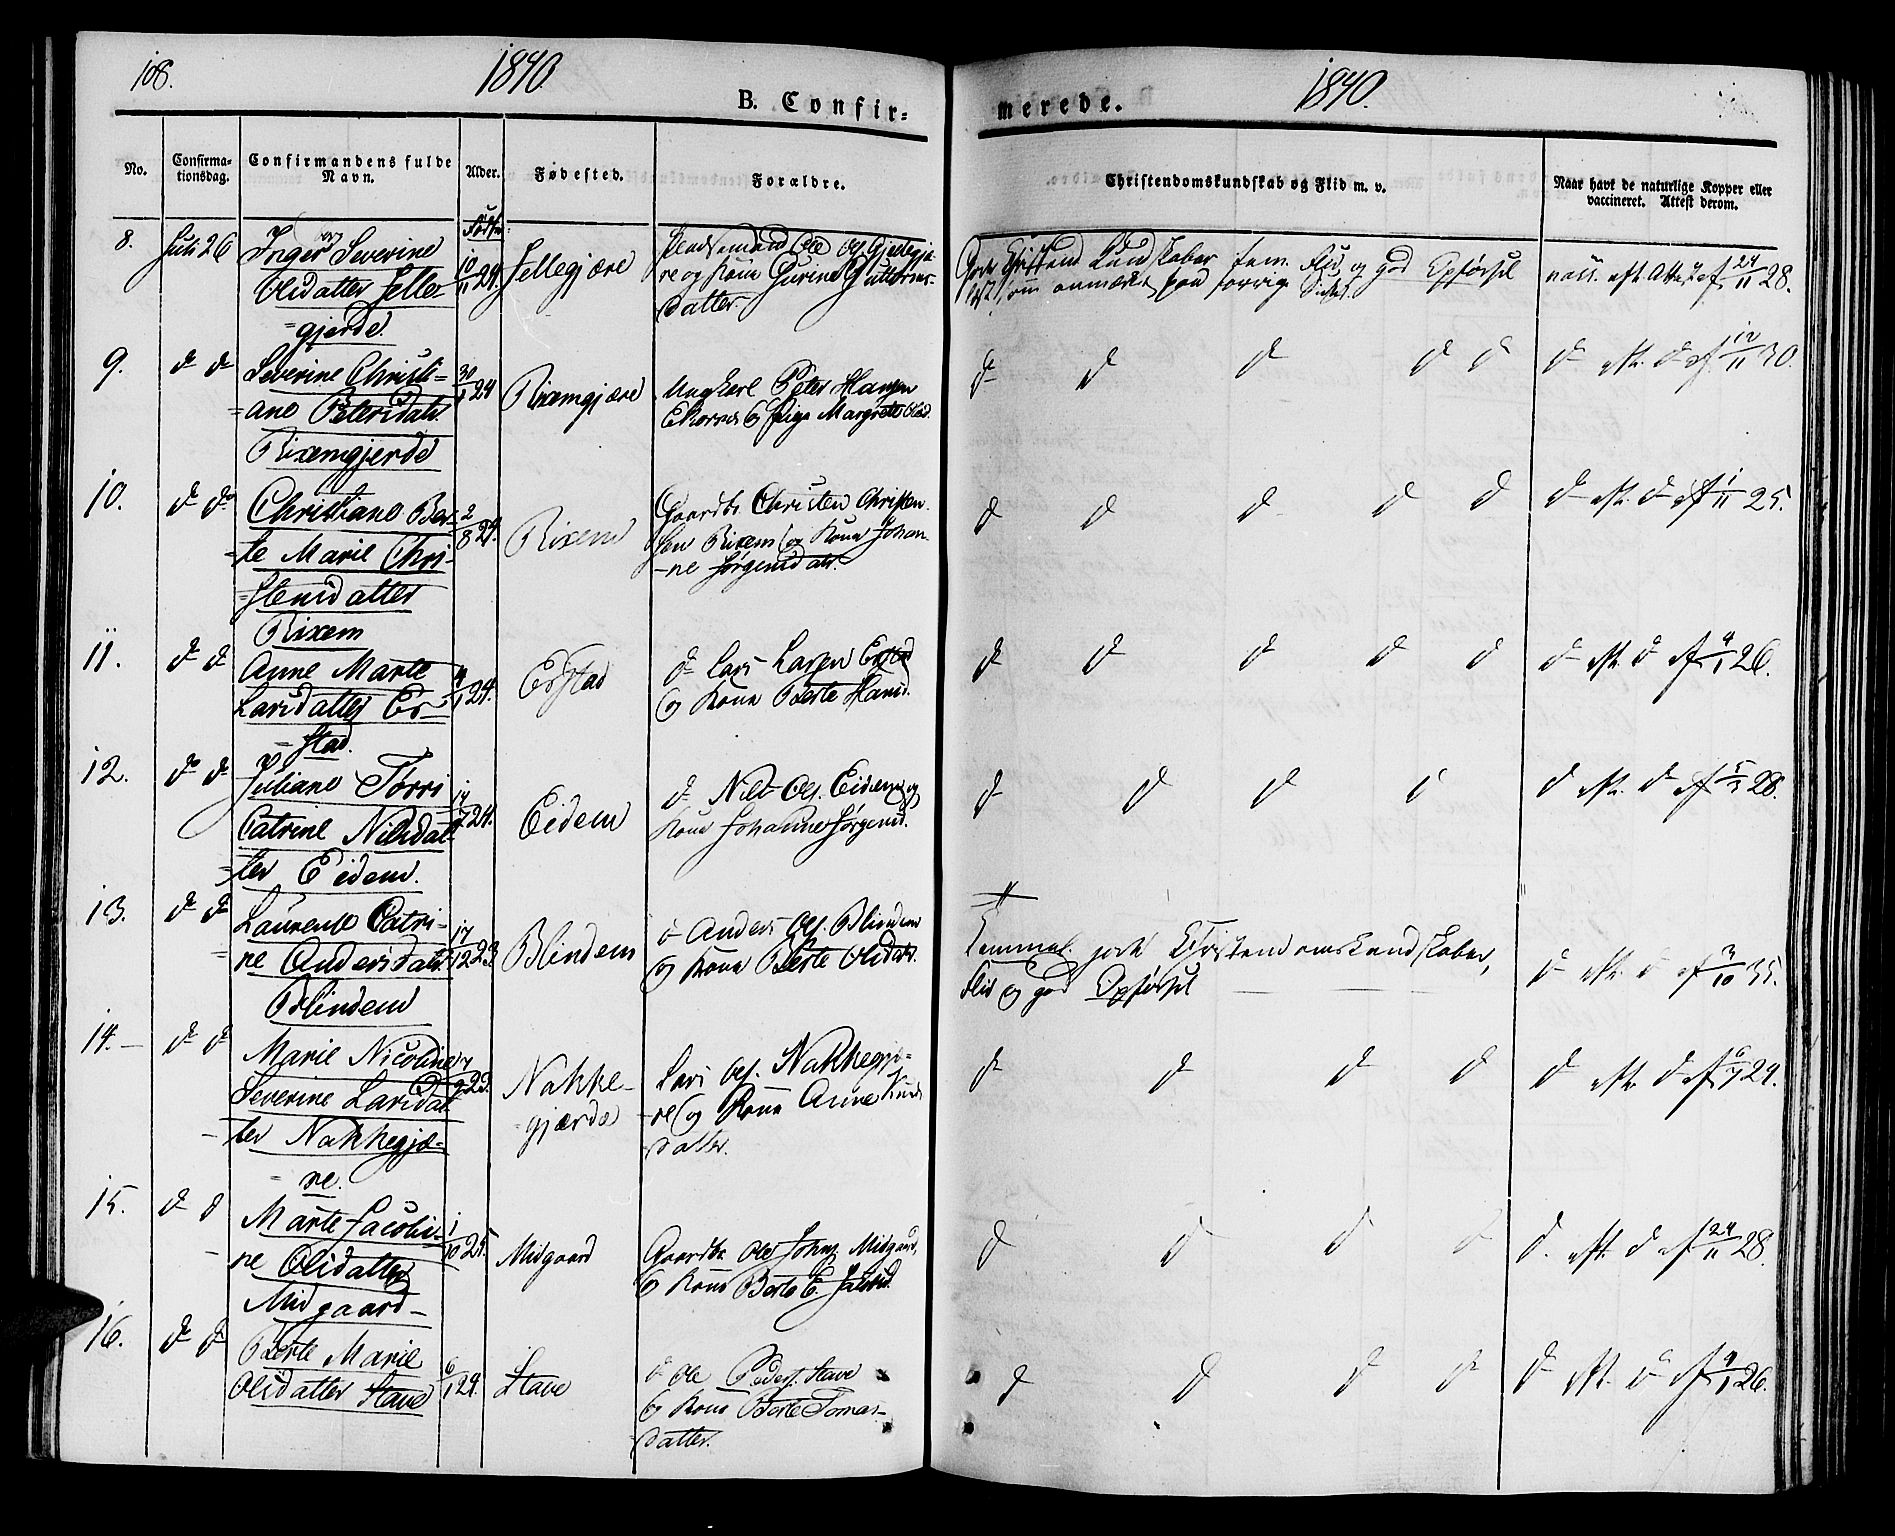 108.
1840.
1840.
B. Confir-
merede.
No.
Confirma-
tionsdag.
Confirmandens fulde
Navn.
Alder.
Fødested.
Forældre.
Christendomskundskab og Flid m. v.
Naar havt de naturlige Kopper eller
vaccineret. Attest derom.
8.
Juli 26
Inger Severine
Olidatter Jelle-
=gjerde.
10/11 24.
Jellegjære
re og Kone Gurine Guttorms-
datter.
Flid og god Opførsel
vacc. eft. Attest af 24/11 28.
9.
d d
Severine Christi-
=ane Petersdatr.
Rixemgjerde
30/1 24
Rixemgjære
Ungkarl Peter Hansen
Ekornes og Pige Margrete Olsd.
d d d d d
d eft. d af 12/11 30.
10.
d do
Christiane Ber-
=te Marie Chri-
=stensdatter
Rixem
2/8 24.
Rixem
Gaardbr. Christen Christen-
sen Rixem og Kone Johan-
-ne Jørgensdatr.
d d d d d
d eft. d af 1/11 25.
11.
d d
Anne Marte
Larsdatter Er-
=stad.
4/1 24.
Erstad
d Lars Larsen Erstad
og Kone Berte Hansd.
d d d d d
d eft. d af 4/1 26.
12.
do d
Juliane Torri
Catrine Nilsdat-
=ter Eidem.
24.
Eidem
d Nils Ols. Eidem og
Kone Johanne Jørgensd.
d d d d
d eft. d af 5/3 28.
13.
d d
Laurense Catri-
=ne Andersdatr.
Blindem
17/12 23
Blindem
d Anders Ols. Blindem
og Kone Berte Olsdatr.
Temmel. gode Christendomskundskaber,
Flid og god Opførsel
d eft. d af 3/10 35.
14.-
d d
Marie Nicoline
Severine Larsdat-
-ter Nakkegjæ-
=re.
23.
Nakke-
=gjærde
Lars Ols. Nakkegjæ-
-re og Kone Anne Knuds
datter.
d d d d
d eft. d af 29.
15.
d d
Marte Jacobi-
-ne Olsdatter
Midgaard-
1/10 25.
Midgaard
Gaardbr. Ole Johns. Midgaard,
og Kone Berte E. Jalsbd.
d d d d
d. eft. d af 24/11 28.
16.
d d
Berte Marie
Olsdatter Stave
6/1 24.
Stave
d Ole Peders. Stave
og Kone Berte Tomas-
datter.
d d d d
d eft. d af 4/1 26.